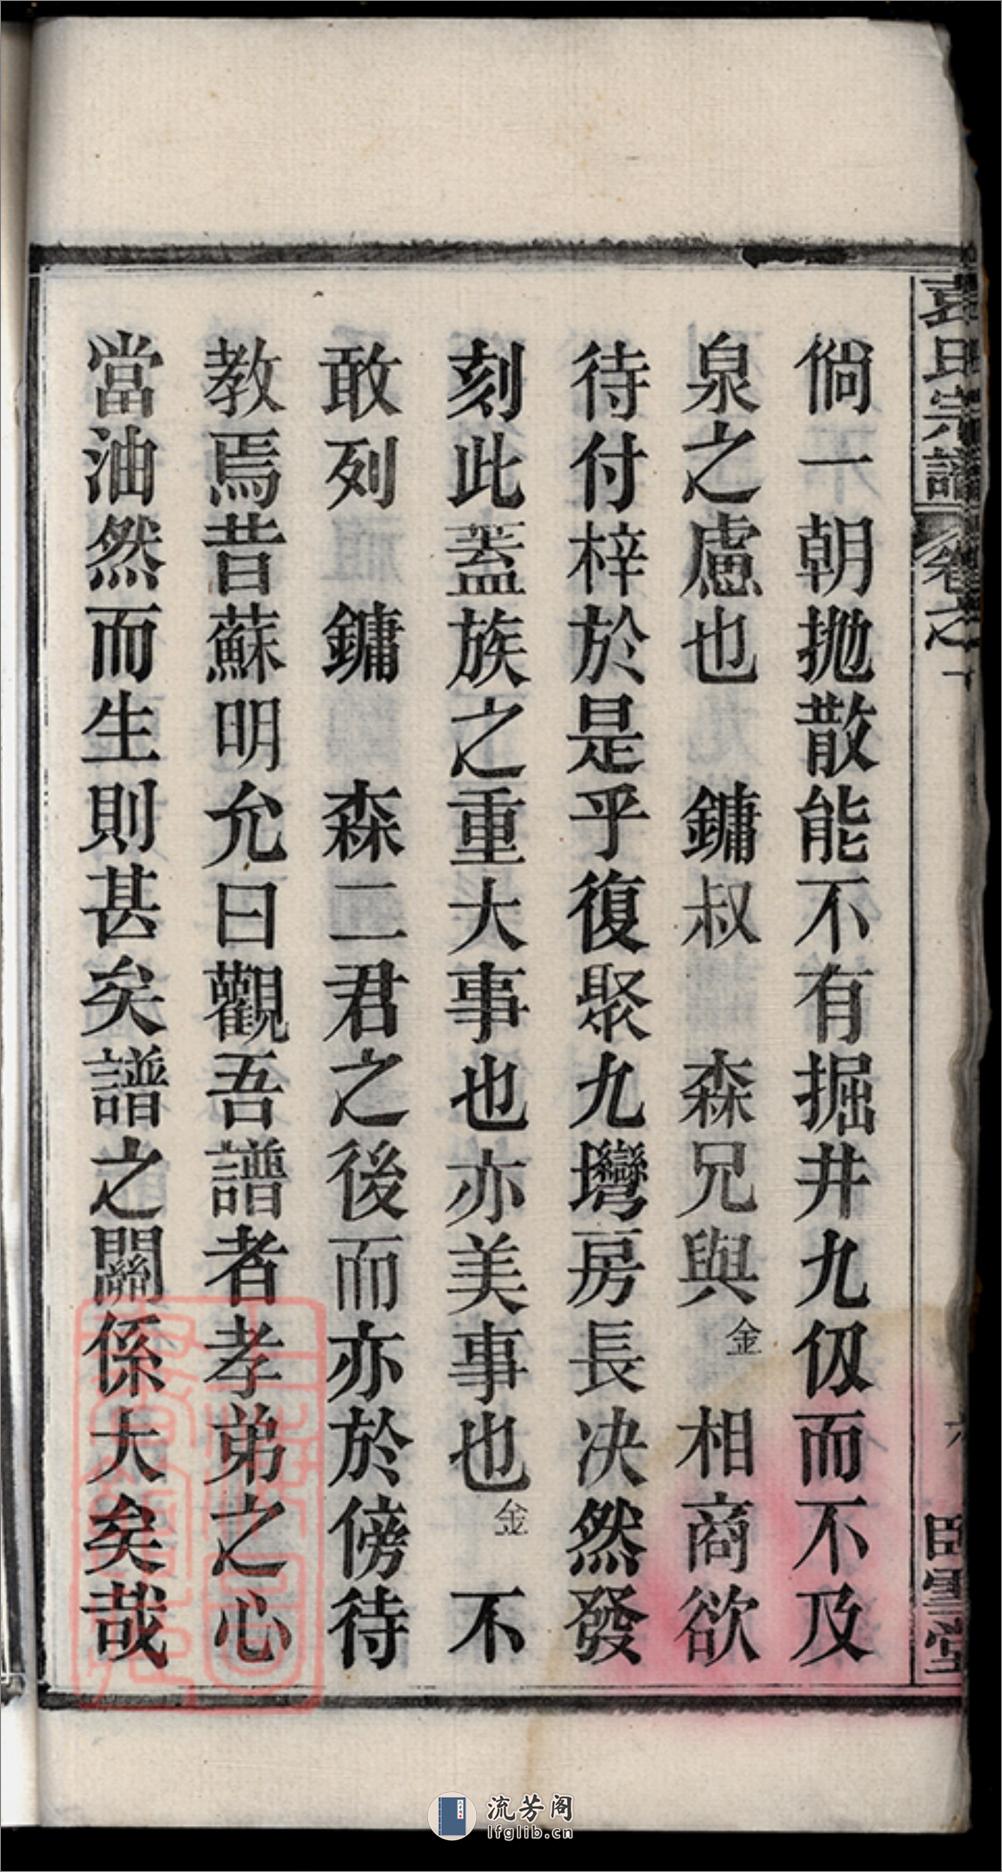 袁氏宗譜 卷之
臥雪堂
倘一朝拋散能不有掘井九仭而不及
泉之慮也 鏞叔 森兄與金 相商欲
待付梓於是乎復聚九灣房長决然發
刻此蓋族之重大事也亦美事也金 不
敢列 鏞 森二君之後而亦於傍待
教焉昔蘇明允曰觀吾譜者孝弟之心
當油然而生則甚矣譜之關係大矣哉
流芳阁
lfglib.cn